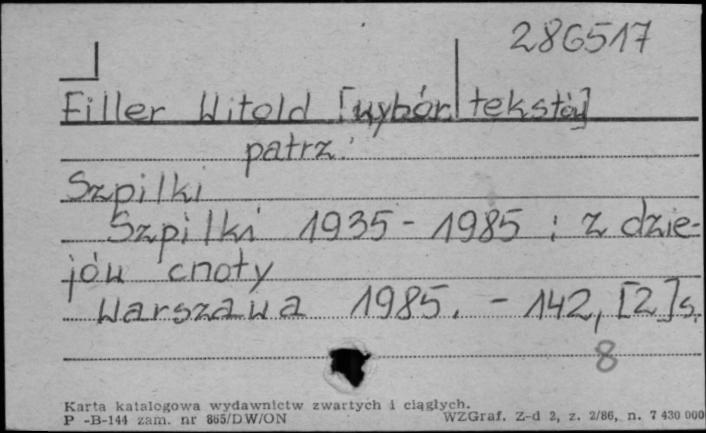 286517
Filler Witold [wybór tekstów]
patrz:
Szpilki
Szpilki 1935-1985 : z dzie-
jów cnoty
Warszawa 1985. - 142, [2] s.
8
Karta katalogowa wydawnictw zwartych i ciągłych.
P -B-144 zam. nr 865/DW/ON WZGraf. Z-d 2, z. 2/86, n. 7 430 000